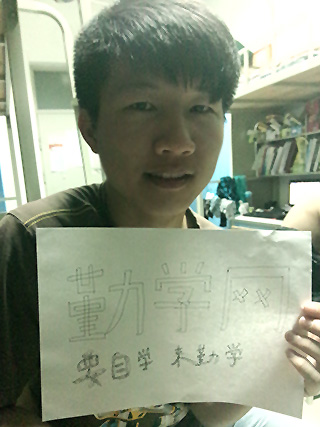 勤学网
要自学 来勤学